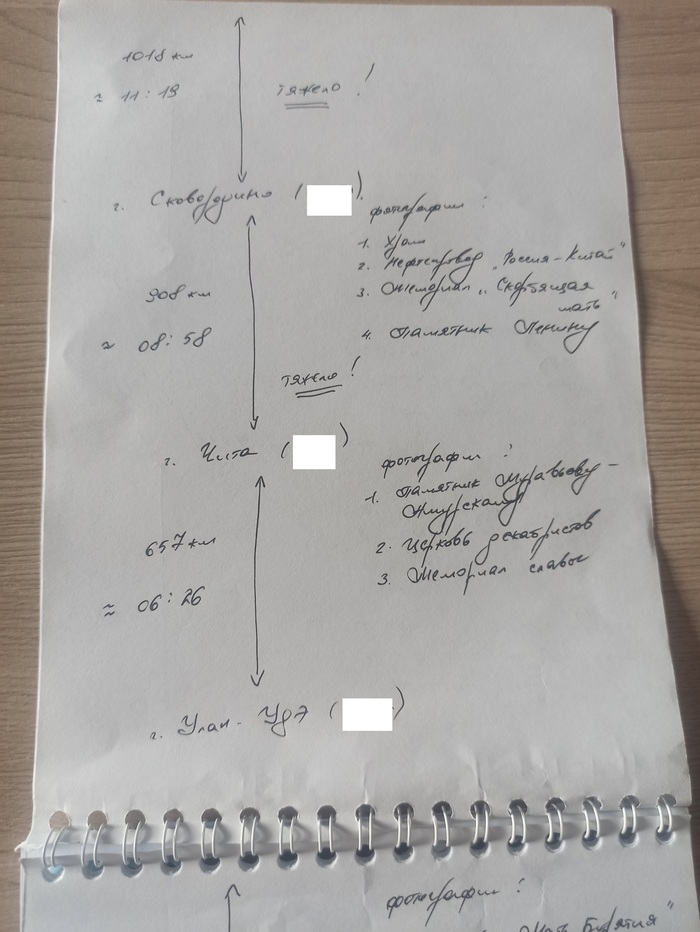 1018 км
≈ 11:19
тяжело!
г. Сковородино ( ).
фотографии:
1. Храм
2. Нефтепровод „Россия-Китай"
3. Мемориал „Скорбящая
мать"
4. Памятник Ленину
908 км
≈ 08:58
тяжело!
г. Чита ( )
фотографии:
1. Памятник Муравьёву-
Амурскому
2. Церковь декабристов
3. Мемориал славы
657 км
≈ 06:26
г. Улан-Удэ ( )
фотографии:
Мать Бурятия"